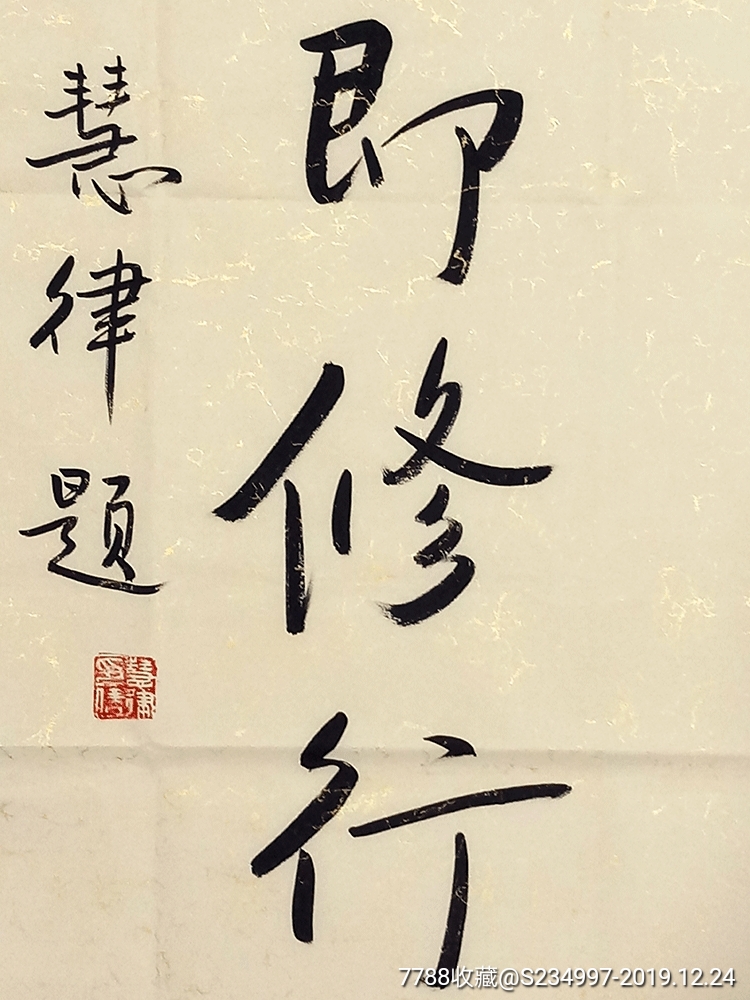 即修行
慧律題
7788收藏@S234997-2019.12.24